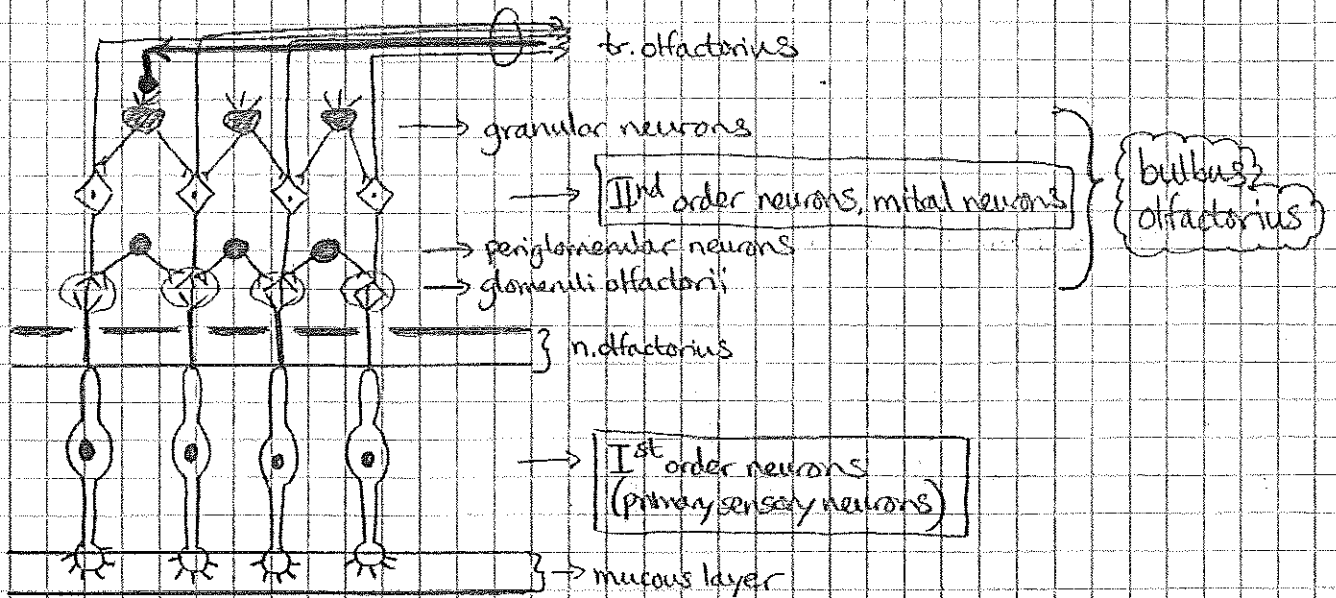 tr. olfactorius
→ granular neurons
→ IInd order neurons, mitral neurons
→ periglomerular neurons
→ glomeruli olfactorii
bulbus
olfactorius
n. olfactorius
→ Ist order neurons
(primary sensory neurons)
→ mucous layer